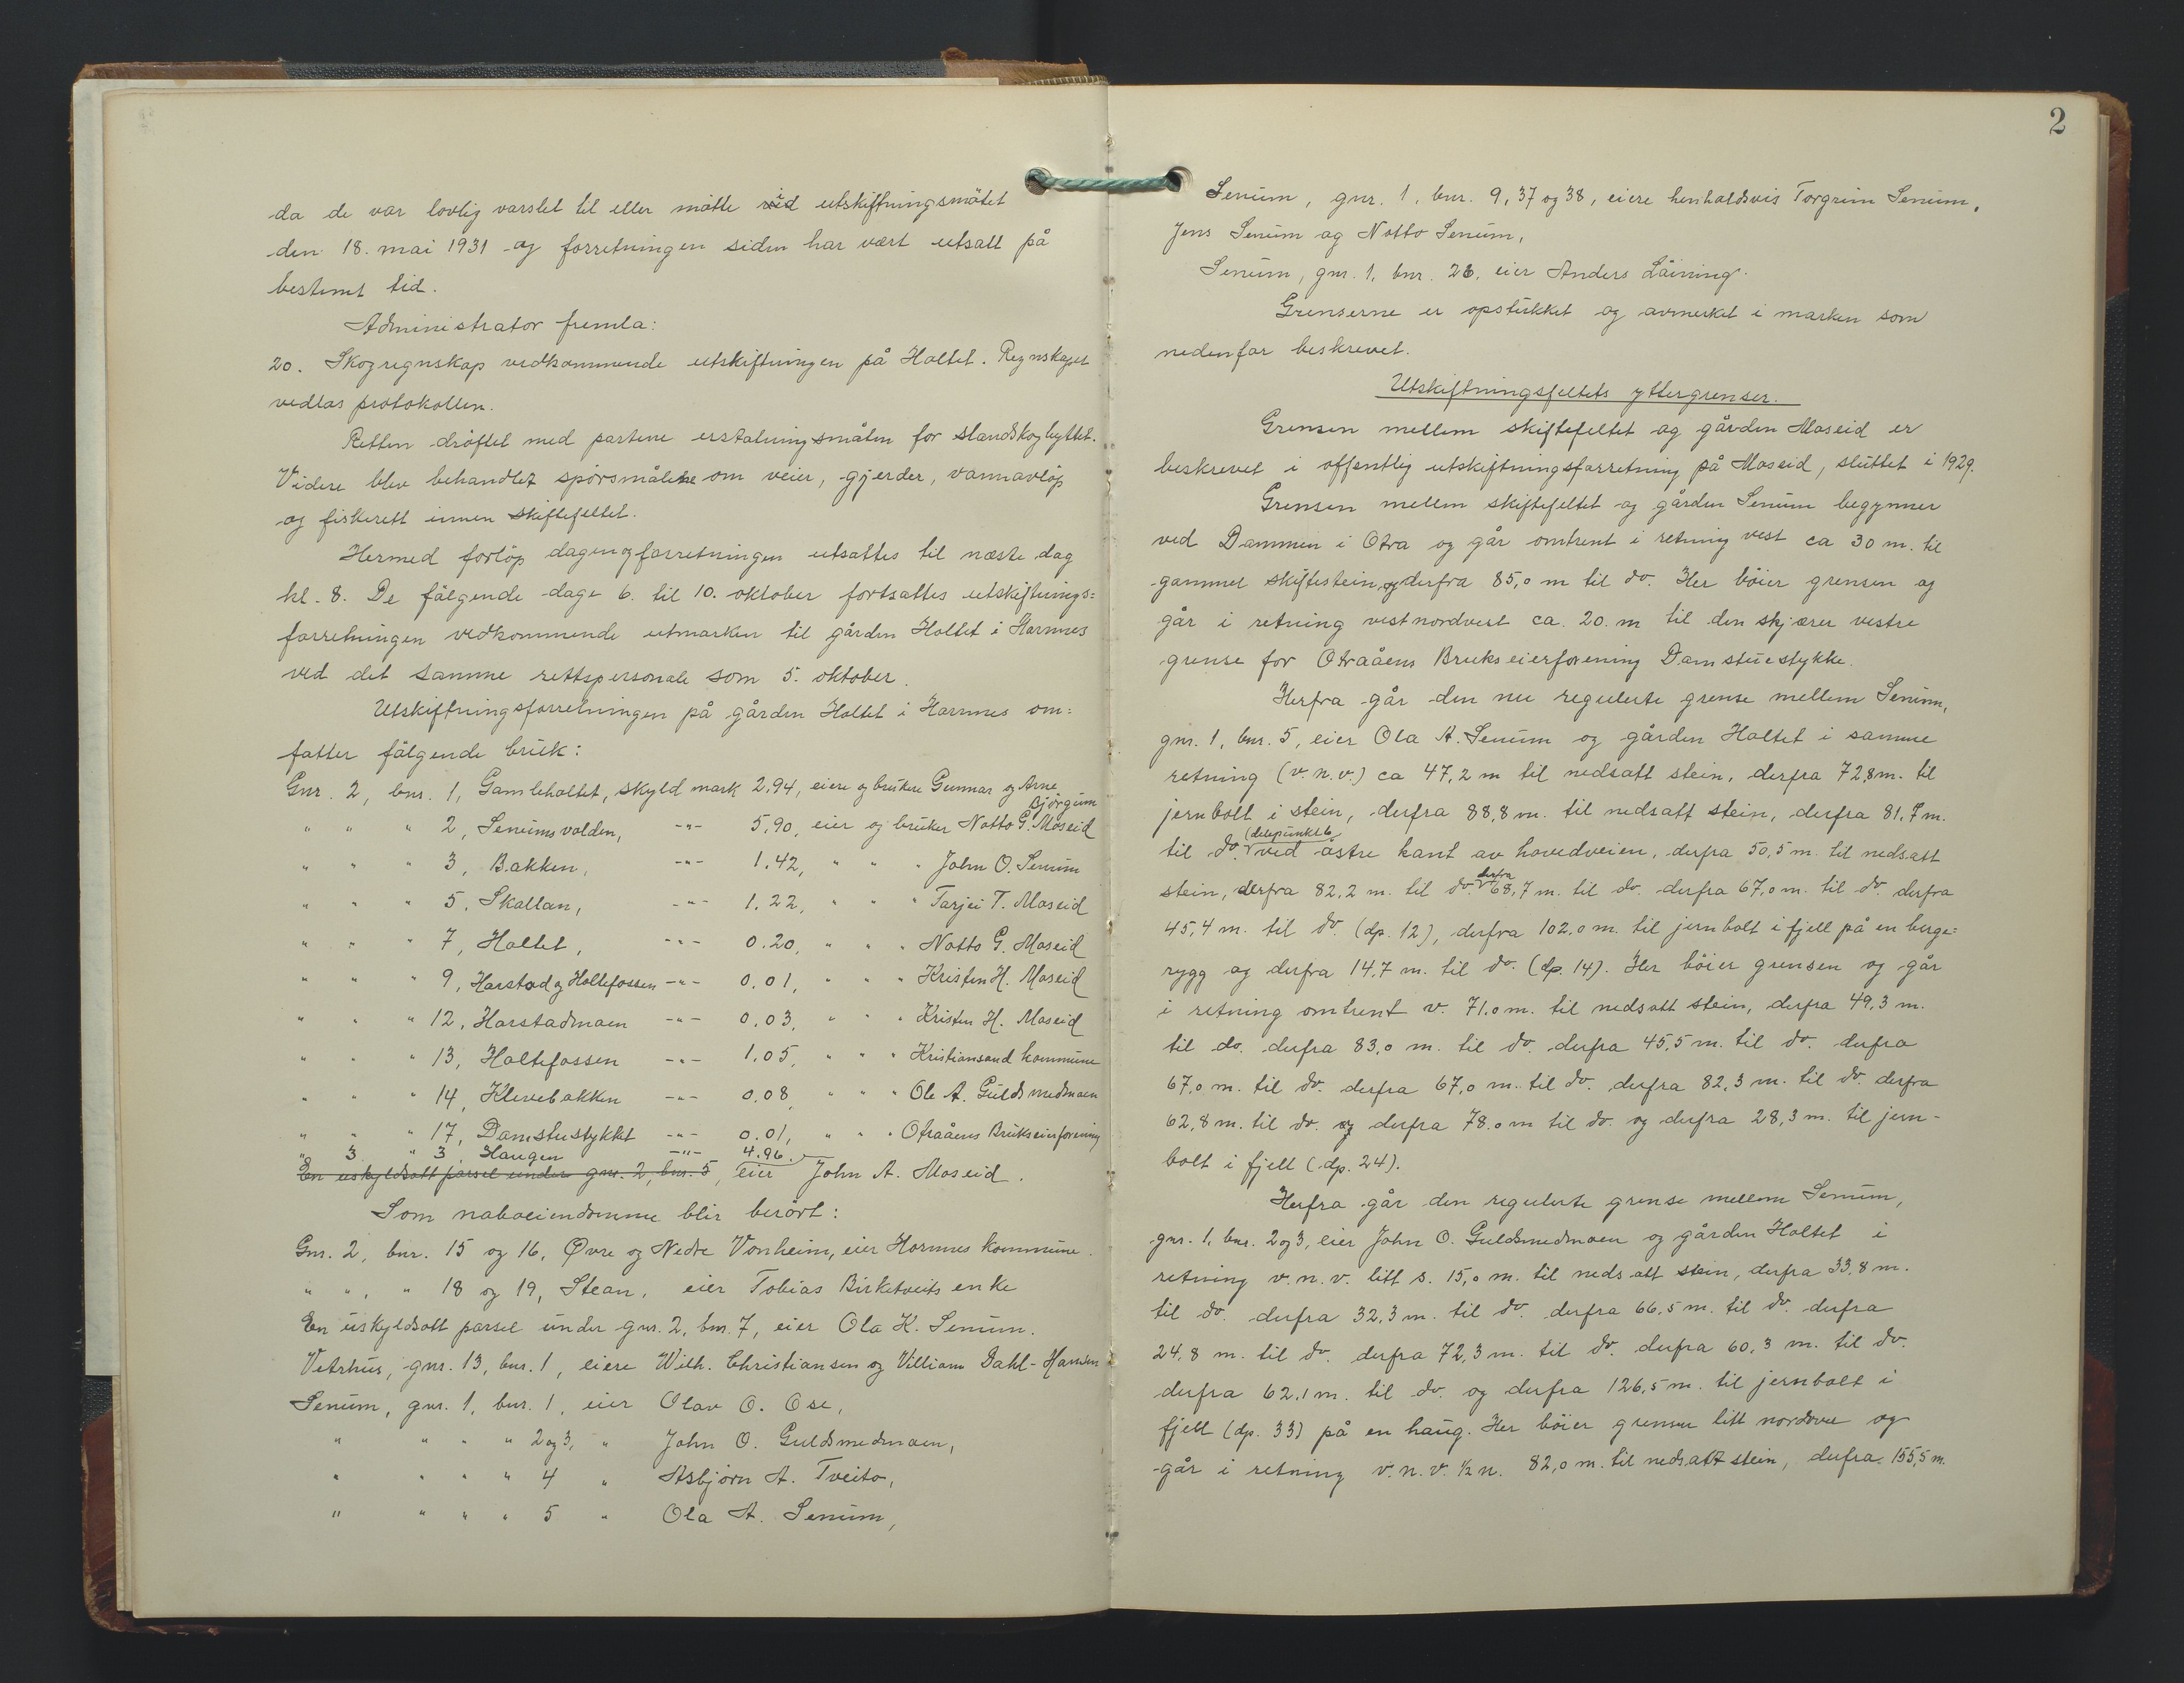 da de var lovlig varslet til eller møtte ved utskiftningsmøtet
den 18. mai 1931 og forretningen siden har vært utsatt på
bestemt tid.
Administrator fremla:
20. Skogregnskap vedkommende utskiftningen på Holtet. Regnskapet
vedlas protokollen.
Retten drøftet med partene erstatningsmålen for standskogbyttet.
Videre blev behandlet spørsmålene om veier, gjerder, vannavløp
og fiskerett innen skiftefeltet.
Hermed forløp dagen og forretningen utsattes til næste dag
kl. 8. De følgende dage 6. til 10. oktober fortsattes utskiftnings=
forretningen vedkommende utmarken til gården Holtet i Hornnes
ved det samme rettspersonale som 5. oktober.
Utskiftningsforretningen på gården Holtet i Hornnes om=
fatter følgende bruk:
Gnr. 2, bnr. 1, Gamleholtet, skyld mark 2,94, eiere og brukere Gunnar og Arne
Bjørgum
" " " 2, Senumsvolden, -"- 5,90, eier og bruker Notto G. Moseid
" " " 3, Bakken, -"- 1.42, " " " John O. Senum
" " " 5, Skallan, -"- 1.22, " " " Tarjei T. Moseid
" " " 7, Holtet, -"- 0.20, " " " Notto G. Moseid
" " " 9, Harstad og Holtefossen -"- 0.01, " " " Kristen H. Moseid
" " " 12, Harstadmoen -"- 0.03, " " " Kristen H. Moseid
" " " 13, Holtefossen -"- 1.05, " " " Kristiansand kommune
" " " 14, Klevebakken -"- 0.08, " " " Ole A. Guldsmedmoen
" " " 17, Damstustykket -"- 0.01, " " " Otraåens Brukseierforening
" 3 " 3 Haugen -"- 4.96.
En uskyldsatt parsel under gnr. 2, bnr. 5, eier John A. Moseid.
Som naboeiendomme blir berørt:
Gnr. 2, bnr. 15 og 16, Øvre og Nedre Vonheim, eier Hornnes kommune.
" " , " 18 og 19, Stean, eier Tobias Birketveits enke
En uskyldsatt parsel under gnr. 2, bnr. 7, eier Ola K. Senum.
Vetrhus, gnr. 13, bnr. 1, eiere Wilh. Christiansen og Villiam Dahl-Hansen
Senum, gnr. 1, bnr. 1, eier Olav O. Ose,
" " " " 2 og 3, " John O. Guldsmedmoen,
" " " " 4 " Asbjørn A. Tveito,
" " " " 5 " Ola A. Senum,
2
Senum, gnr. 1, bnr. 9, 37 og 38, eiere henholdsvis Torgrim Senum,
Jens Senum og Notto Senum,
Senum, gnr. 1, bnr. 26, eier Anders Låining.
Grenserne er opstukket og avmerket i marken som
nedenfor beskrevet.
Utskiftningsfeltets yttergrenser.
Grensen mellem skiftefeltet og gården Moseid er
beskrevet i offentlig utskiftningsforretning på Moseid, sluttet i 1929.
Grensen mellem skiftefeltet og gården Senum begynner
ved Dammen i Otra og går omtrent i retning vest ca 30 m. til
gammel skiftestein, og derfra 85,0 m til do. Her bøier grensen og
går i retning vestnordvest ca. 20. m til den skjærer vestre
grense for Otraåens Brukseierforening Damstuestykke.
Herfra går den nu regulerte grense mellem Senum,
gnr. 1, bnr. 5, eier Ola A. Senum og gården Holtet i samme
retning (v. n. v.) ca 47,2 m til nedsatt stein, derfra 72,8 m. til
jernbolt i stein, derfra 88,8 m. til nedsatt stein, derfra 81,7 m.
(delepunkt 6
til do. ved østre kant av hovedveien, derfra 50,5 m. til nedsatt
stein, derfra 82,2 m. til do. derfra 68,7 m. til do. derfra 67,0 m. til do. derfra
45,4 m. til do. (dp. 12), derfra 102,0 m. til jernbolt i fjell på en berge=
rygg og derfra 14,7 m. til do. (dp. 14). Her bøier grensen og går
i retning omtrent v. 71,0 m. til nedsatt stein, derfra 49,3 m.
til do. derfra 83,0 m. til do. derfra 45,5 m. til do. derfra
67,0 m. til do. derfra 67,0 m. til do. derfra 82,3 m. til do. derfra
62,8 m. til do. og derfra 78.0 m til do. og derfra 28,3 m. til jern-
bolt i fjell (dp. 24).
Herfra går den regulerte grense mellem Senum,
gnr. 1, bnr. 2 og 3, eier John O. Guldsmedmoen og gården Holtet i
retning v. n. v. litt s. 15,0 m. til nedsatt stein, derfra 33,8 m.
til do. derfra 32,3 m. til do. derfra 66,5 m. til do. derfra
24,8 m. til do. derfra 72,3 m. til do. derfra 60,3 m. til do.
derfra 62,1 m. til do. og derfra 126,5 m. til jernbolt i
fjell (dp. 33) på en haug. Her bøier grensen litt nordover og
går i retning v. n. v. ½ n. 82,0 m. til nedsatt stein, derfra 155,5 m.